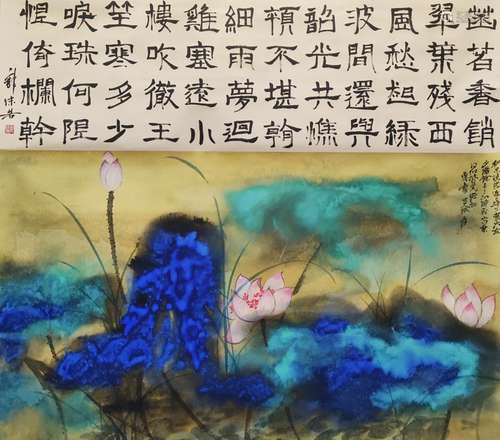 菡萏香銷
翠葉殘西
風愁起綠
波間還與
韶光共憔
顇不堪看
細雨夢迴
雞塞遠小
樓吹徹玉
笙寒多少
淚珠何限
恨倚欄幹